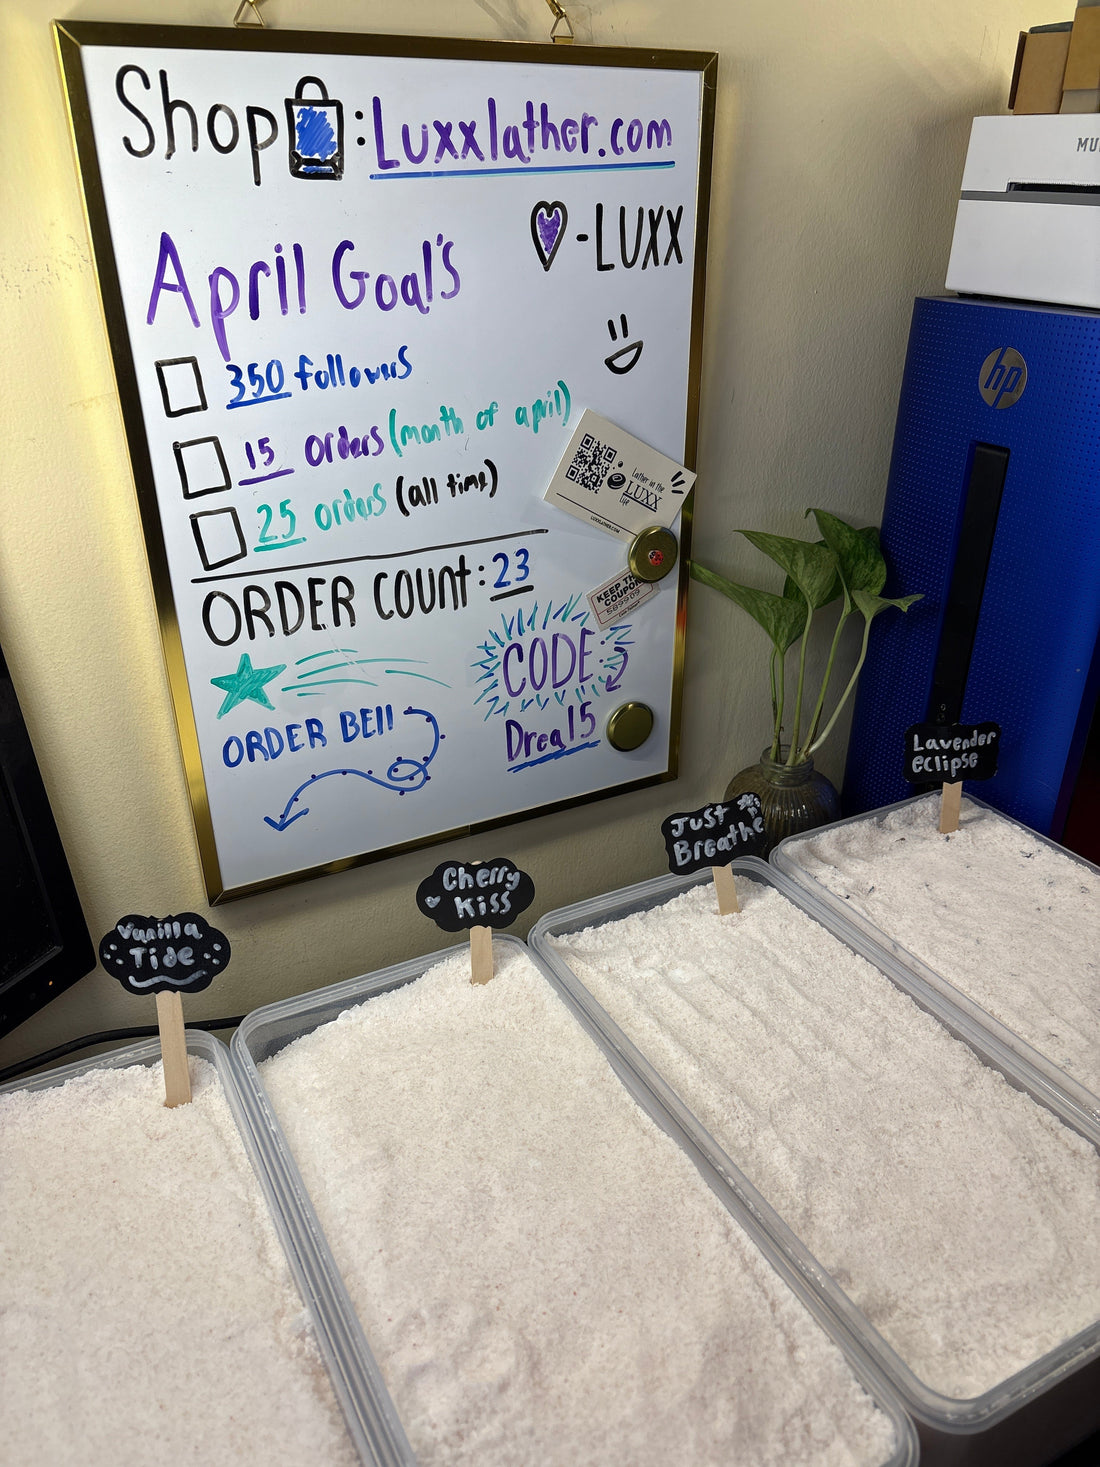 Shop : Luxxlather.com
-LUXX
April Goal's
350 followers
15 orders (month of april)
25 orders (all time)
ORDER COUNT: 23
CODE:
Drea15
ORDER BEll
Lather in the
LUXX
life
LUXXLATHER.COM
KEEP TH
COUPON
589909
MU
hp
Lavender
eclipse
Just
Breathe
Cherry
Kiss
Vanilla
Tide